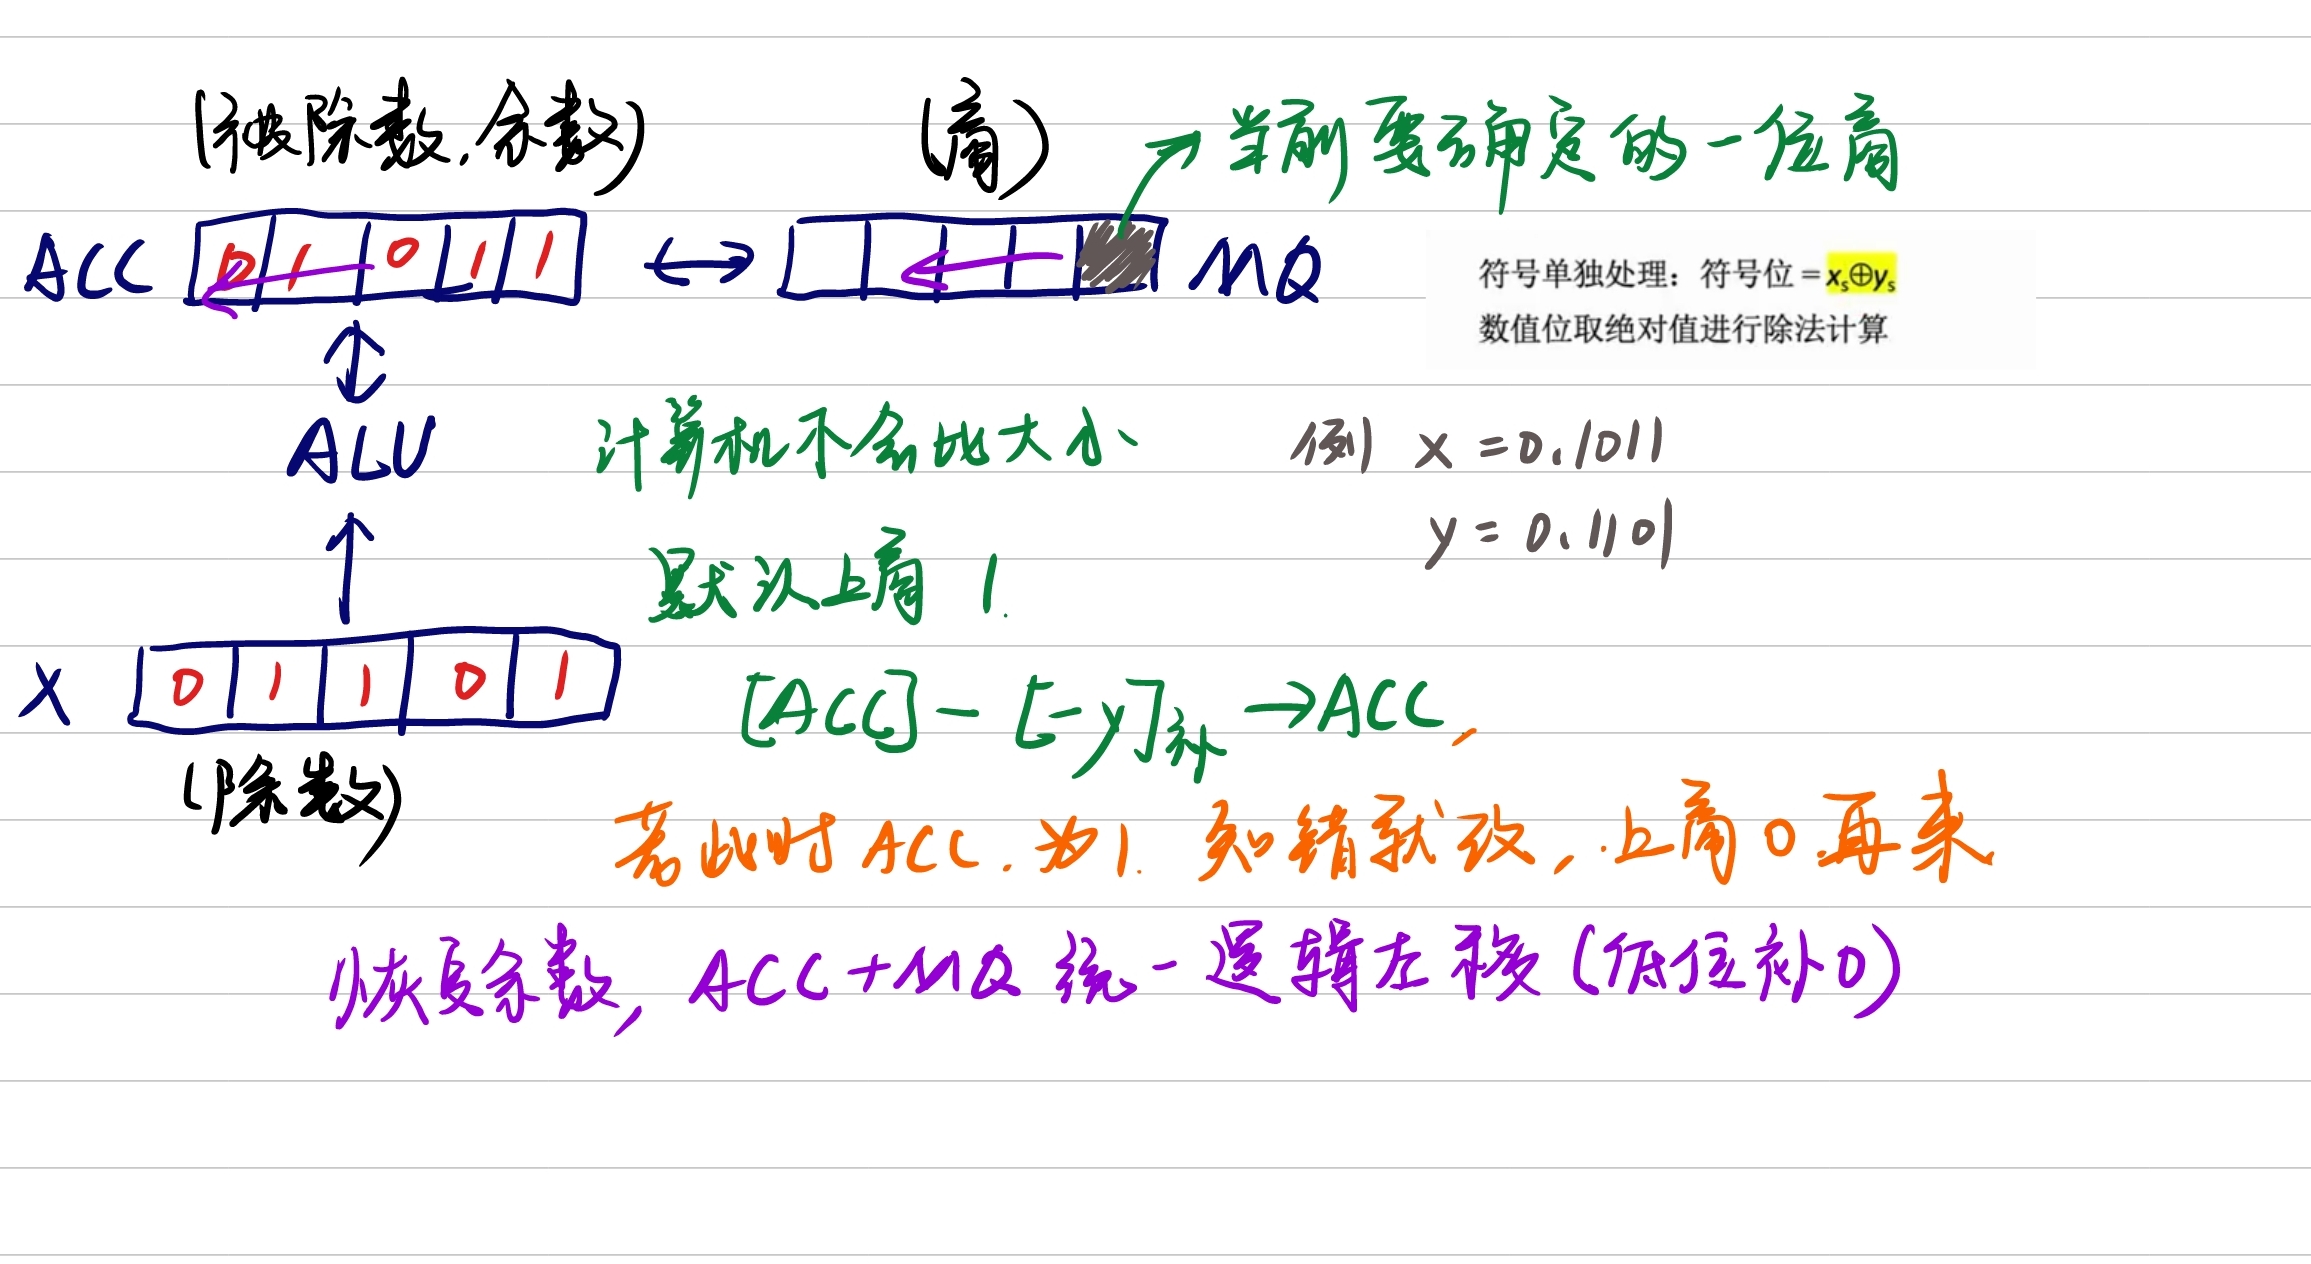 (被除数,余数) (商) 当前要确定的一位商
ACC 0 1 0 1 1 MQ
符号单独处理：符号位=xs⊕ys
数值位取绝对值进行除法计算
ALU 计算机不会比大小 例 x=0.1011
y=0.1101
默认上商 1.
X 0 1 1 0 1 [ACC]-[-y]补→ACC,
(除数)
若此时ACC.为1.知错就改,上商0再来
恢复余数,ACC+MQ统一逻辑左移(低位补0)